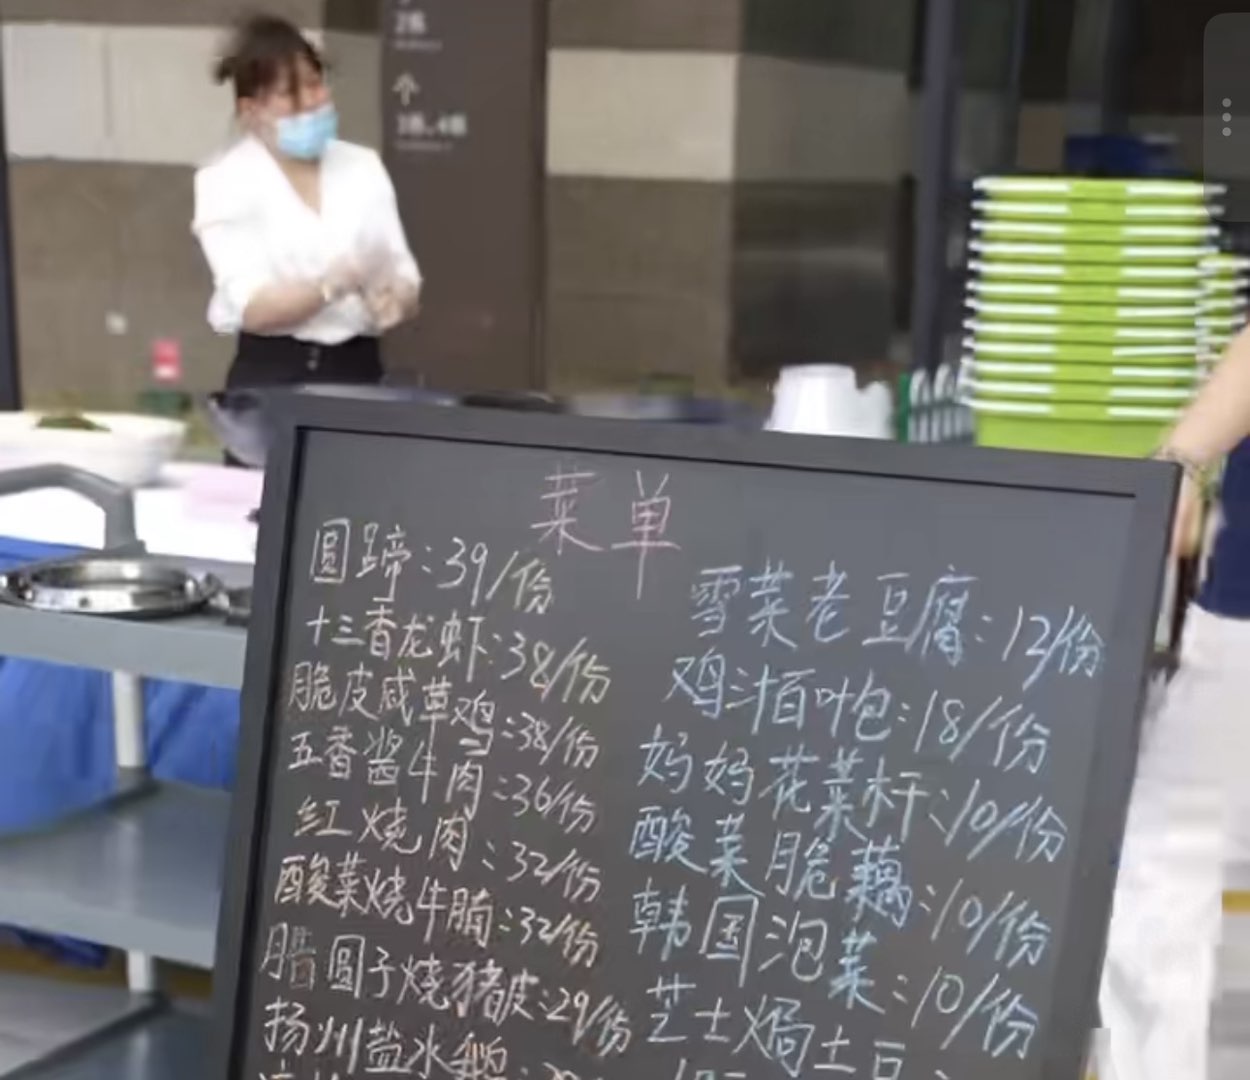 菜单
圆蹄:39/份
十三香龙虾:38/份
脆皮咸草鸡:38/份
五香酱牛肉:36/份
红烧肉:32/份
酸菜烧牛腩:32/份
腊圆子烧猪皮:29/份
扬州盐水鹅:
雪菜老豆腐:12/份
鸡汁百叶包:18/份
妈妈花菜杆:10/份
酸菜脆藕:10/份
韩国泡菜:10/份
芝士焗土豆:
个